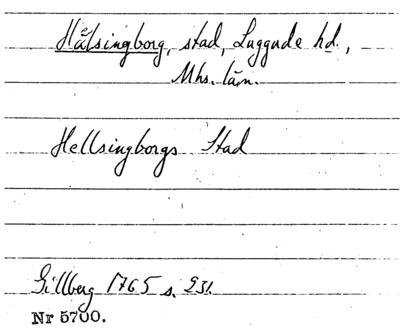 Hälsingborg, stad, Luggude hd.,
Mhs. län.
Hellsingborgs Stad
Gillberg 1765 s. 231.
Nr 5700.